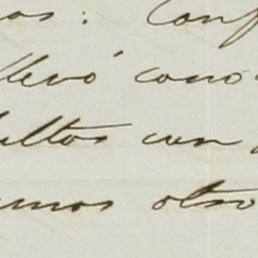 os: Conf
llevó cono
ultos con
emos otro